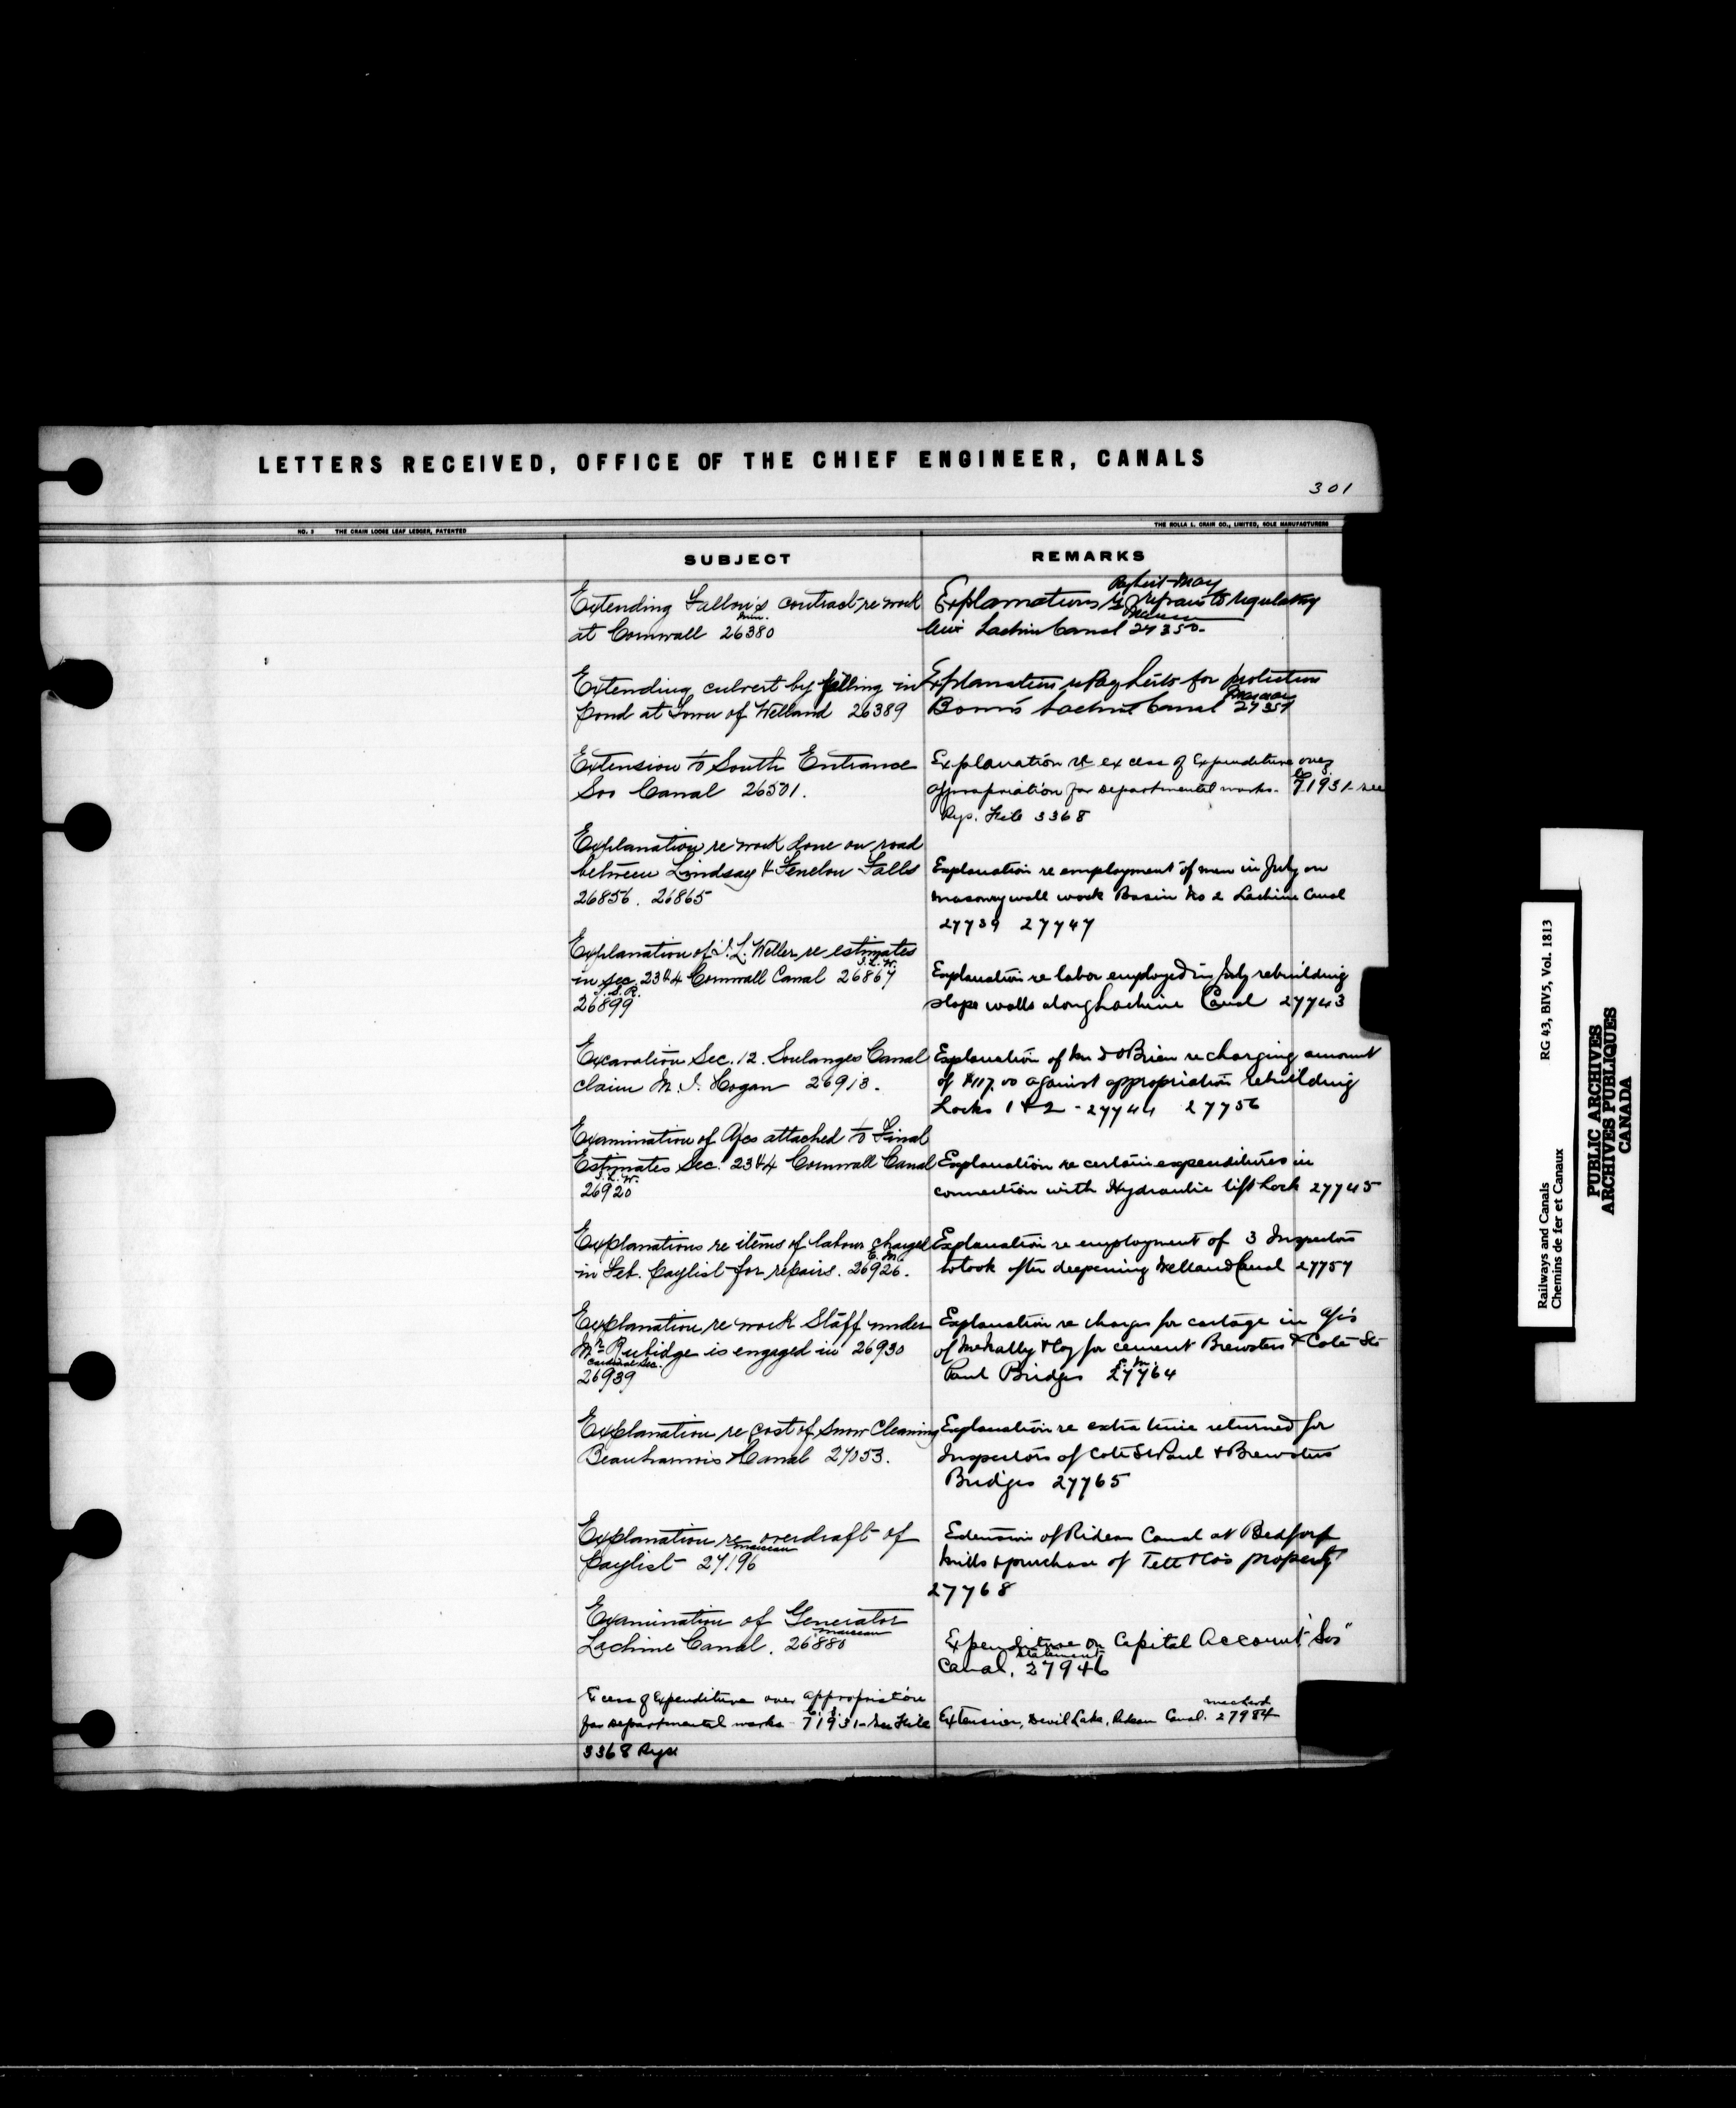 LETTERS RECEIVED, OFFICE OF THE CHIEF ENGINEER, CANALS
301
NO. 3 THE CRAIN LOOSE LEAF LEDGER, PATENTED
THE ROLLA L. CRAIN CO., LIMITED, SOLE MANUFACTURERS
SUBJECT
Extending Fallon's contract re work
at Cornwall 26380
Extending culvert by filling in
pond at Town of Welland 26389
Extension to South Entrance
Soo Canal 26501.
Explanation re work done on road
between Lindsay & Fenelon Falls
26856. 26865
Explanation of J. L. Weller re estimates
J.L.W.
in Sec. 2 3 & 4 Cornwall Canal 26867
T.S.R.
26899
Excavation Sec. 12. Soulanges Canal
claim M. J. Hogan 26913.
Examination of A/cs attached to Final
Estimates Sec. 2 3 & 4 Cornwall Canal
J.L.W.
26920
Explanations re items of labour charged
E.M.
in Feb. Paylist for repairs. 26926.
Explanation re work Staff under
Mr Rubidge is engaged in 26930
Cardinal Sec.
26939
Explanation re cost of Snow Cleaning
Beauharnois Canal 27053.
Explanation re overdraft of
Marceau
Paylist 27196
Examination of Generator
Marceau
Lachine Canal. 26880
Excess of Expenditure over appropriation
for departmental works - 71931 - See File
3368 Rys.
REMARKS
Paylist May
Explanations re repairs to regulating
Weir Lachine Canal 27350.
Explanation re Pay Lists for protection
Marceau
Booms Lachine Canal 27357
Explanation re excess of Expenditure over
appropriation for departmental works. 71931 - see
Rys. File 3368
Explanation re employment of men in July on
masonry wall work Basin No 2 Lachine Canal
27739 27747
Explanation re labor employed in July rebuilding
slope walls along Lachine Canal 27743
Explanation of Mr O'Brien re charging amount
of $117.00 against appropriation rebuilding
Locks 1 & 2 - 27744 27756
Explanation re certain expenditures in
connection with Hydraulic lift Lock 27745
Explanation re employment of 3 Inspectors
to look after deepening Welland Canal 27757
Explanation re charges for cartage in A/c's
of McNally & Coy for cement Brewsters & Cote St
E.M.
Paul Bridges 27764
Explanation re extra time returned for
Inspectors of Cote St Paul & Brewsters
Bridges 27765
Extension of Rideau Canal at Bedford
Mills & purchase of Tett & Co's property
27768
Expenditure on Capital Account "Soo"
Statement
Canal. 27946
Extension, Devil Lake, Rideau Canal. 27984
Railways and Canals
Chemins de fer et Canaux
RG 43, BIV5, Vol. 1813
PUBLIC ARCHIVES
ARCHIVES PUBLIQUES
CANADA